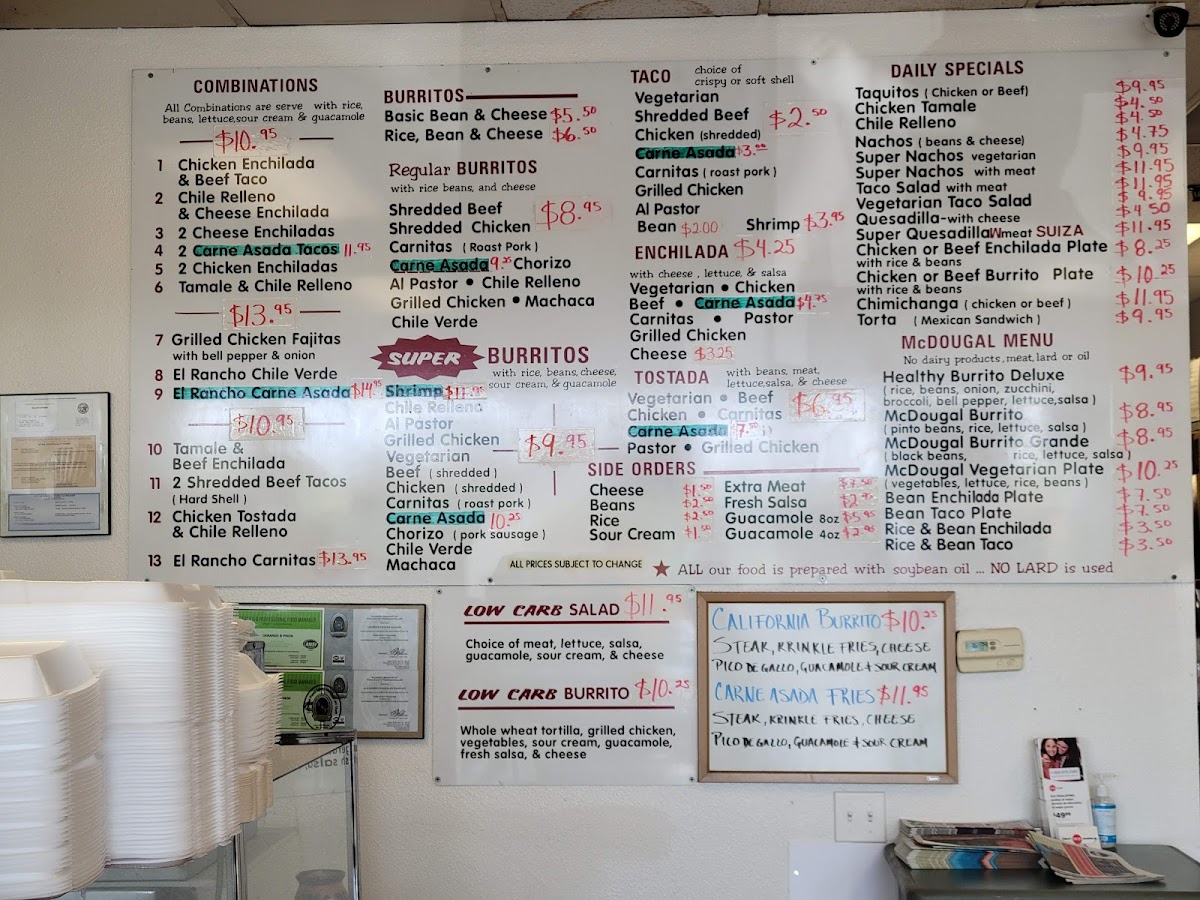 COMBINATIONS
All Combinations are serve with rice,
beans, lettuce,sour cream & guacamole
$10.95
1 Chicken Enchilada
& Beef Taco
2 Chile Relleno
& Cheese Enchilada
3 2 Cheese Enchiladas
4 2 Carne Asada Tacos 11.95
5 2 Chicken Enchiladas
6 Tamale & Chile Relleno
$13.95
7 Grilled Chicken Fajitas
with bell pepper & onion
8 El Rancho Chile Verde
9 El Rancho Carne Asada $14.95
$10.95
10 Tamale &
Beef Enchilada
11 2 Shredded Beef Tacos
( Hard Shell )
12 Chicken Tostada
& Chile Relleno
13 El Rancho Carnitas $13.95
BURRITOS
Basic Bean & Cheese $5.50
Rice, Bean & Cheese $6.50
Regular BURRITOS
with rice beans, and cheese
Shredded Beef
$8.95
Shredded Chicken
Carnitas ( Roast Pork )
Carne Asada 9.25 Chorizo
Al Pastor • Chile Relleno
Grilled Chicken • Machaca
Chile Verde
SUPER BURRITOS
with rice, beans, cheese,
sour cream, & guacamole
Shrimp $11.95
Chile Relleno
Al Pastor
Grilled Chicken
$9.95
Vegetarian
Beef ( shredded )
Chicken ( shredded )
Carnitas ( roast pork )
Carne Asada 10.25
Chorizo ( pork sausage )
Chile Verde
Machaca
TACO choice of
crispy or soft shell
Vegetarian
Shredded Beef $2.50
Chicken (shredded)
Carne Asada $3.00
Carnitas ( roast pork )
Grilled Chicken
Al Pastor
Bean $2.00 Shrimp $3.95
ENCHILADA $4.25
with cheese , lettuce, & salsa
Vegetarian • Chicken
Beef • Carne Asada $4.75
Carnitas • Pastor
Grilled Chicken
Cheese $3.25
TOSTADA with beans, meat,
lettuce,salsa, & cheese
Vegetarian • Beef
$6.95
Chicken • Carnitas
Carne Asada 7.50
Pastor • Grilled Chicken
SIDE ORDERS
Cheese $1.50
Beans $2.50
Rice $2.50
Sour Cream $1.50
Extra Meat $3.50
Fresh Salsa $2.95
Guacamole 8oz $5.95
Guacamole 4oz $2.95
ALL PRICES SUBJECT TO CHANGE
★ ALL our food is prepared with soybean oil ... NO LARD is used
DAILY SPECIALS
Taquitos ( Chicken or Beef) $9.95
Chicken Tamale $4.50
Chile Relleno $4.50
Nachos ( beans & cheese) $4.75
Super Nachos vegetarian $9.95
Super Nachos with meat $11.95
Taco Salad with meat $11.95
Vegetarian Taco Salad $9.95
Quesadilla-with cheese $4.50
Super Quesadilla W meat SUIZA $11.95
Chicken or Beef Enchilada Plate $8.25
with rice & beans
Chicken or Beef Burrito Plate $10.25
with rice & beans
Chimichanga ( chicken or beef ) $11.95
Torta ( Mexican Sandwich ) $9.95
McDOUGAL MENU
No dairy products, meat, lard or oil
Healthy Burrito Deluxe $9.95
( rice, beans, onion, zucchini,
broccoli, bell pepper, lettuce,salsa )
McDougal Burrito $8.95
( pinto beans, rice, lettuce, salsa )
McDougal Burrito Grande $8.95
( black beans, rice, lettuce, salsa )
McDougal Vegetarian Plate $10.25
( vegetables, lettuce, rice, beans )
Bean Enchilada Plate $7.50
Bean Taco Plate $7.50
Rice & Bean Enchilada $3.50
Rice & Bean Taco $3.50
LOW CARB SALAD $11.95
Choice of meat, lettuce, salsa,
guacamole, sour cream, & cheese
LOW CARB BURRITO $10.25
Whole wheat tortilla, grilled chicken,
vegetables, sour cream, guacamole,
fresh salsa, & cheese
CALIFORNIA BURRITO $10.25
STEAK, KRINKLE FRIES, CHEESE
PICO DE GALLO, GUACAMOLE & SOUR CREAM
CARNE ASADA FRIES $11.95
STEAK, KRINKLE FRIES, CHEESE
PICO DE GALLO, GUACAMOLE & SOUR CREAM
$49